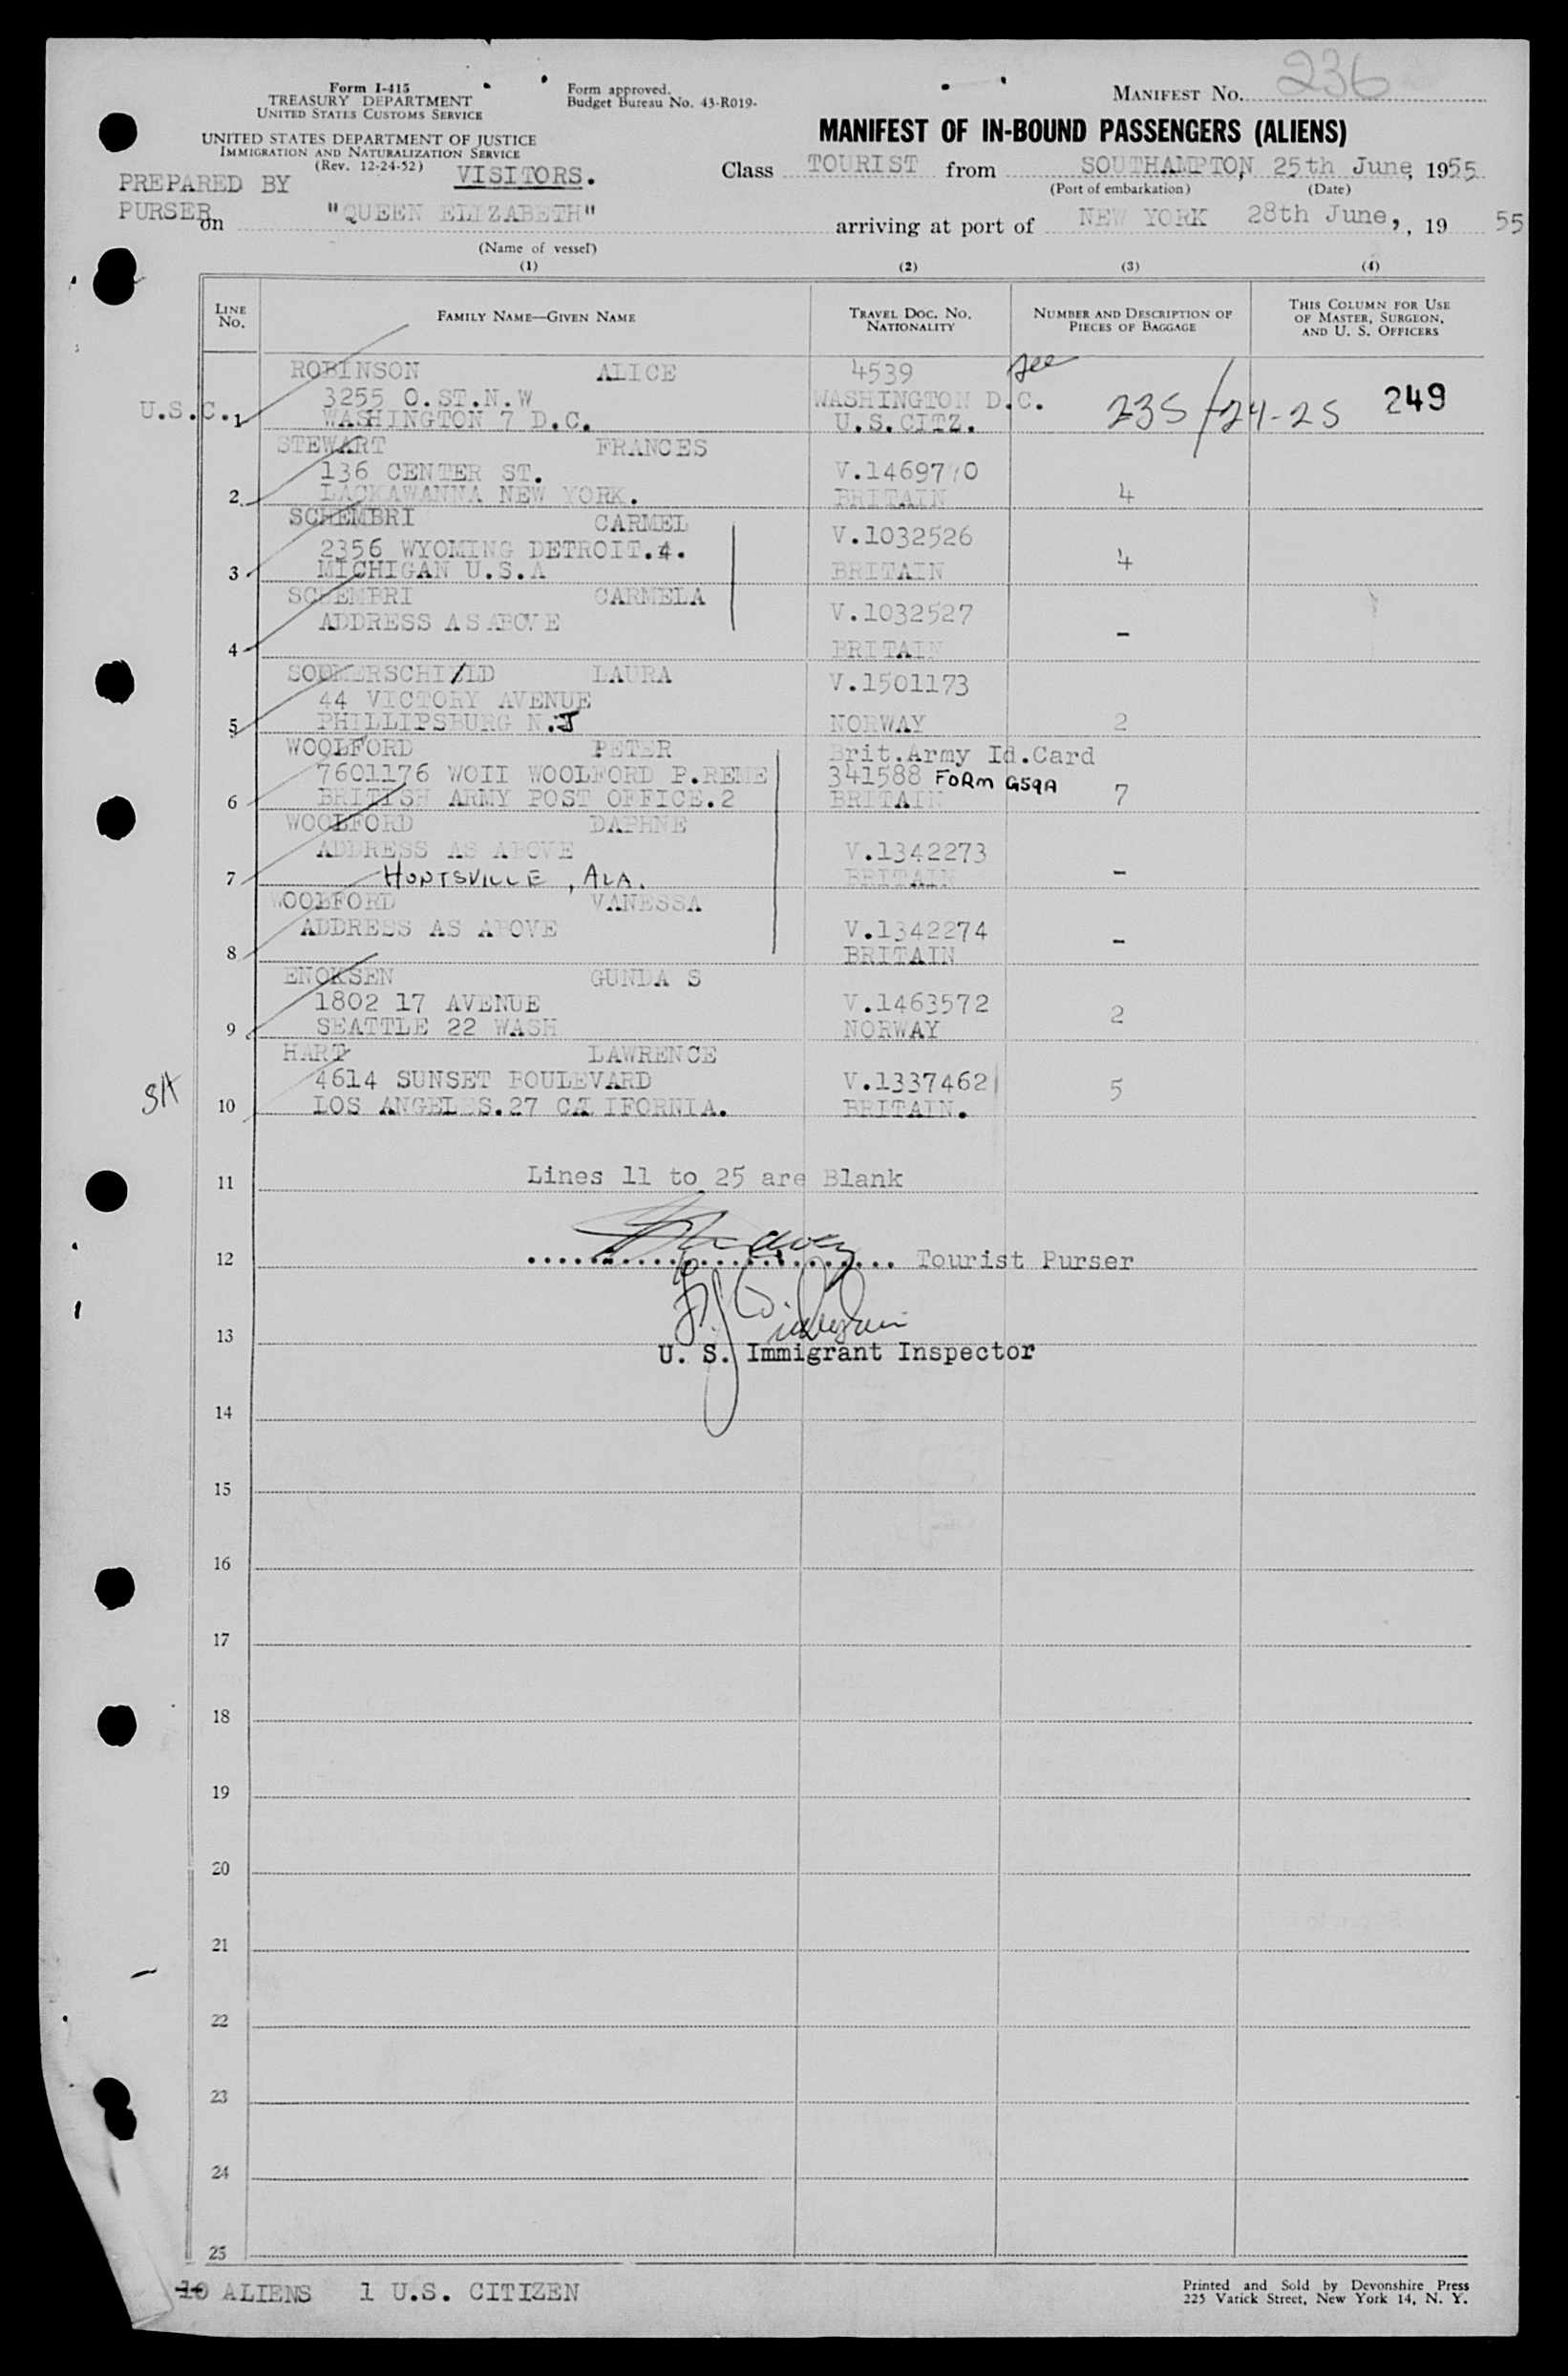 Form I-415
TREASURY DEPARTMENT
UNITED STATES CUSTOMS SERVICE
UNITED STATES DEPARTMENT OF JUSTICE
IMMIGRATION AND NATURALIZATION SERVICE
(Rev. 12-24-52)
Form approved.
Budget Bureau No. 43-R019-
MANIFEST No. 236
MANIFEST OF IN-BOUND PASSENGERS (ALIENS)
PREPARED BY
PURSER
VISITORS.
Class TOURIST from SOUTHAMPTON, 25th June, 1955
(Port of embarkation) (Date)
on "QUEEN ELIZABETH" arriving at port of NEW YORK 28th June,, 19 55
(Name of vessel)
(1) (2) (3) (4)
LINE No.
FAMILY NAME—GIVEN NAME
TRAVEL DOC. NO. NATIONALITY
NUMBER AND DESCRIPTION OF PIECES OF BAGGAGE
THIS COLUMN FOR USE OF MASTER, SURGEON, AND U. S. OFFICERS
ROBINSON ALICE 4539 see
3255 O.ST.N.W WASHINGTON D.C. 235/24-25 249
U.S.C. 1 WASHINGTON 7 D.C. U.S.CITZ.
STEWART FRANCES
136 CENTER ST. V.1469770
2 LACKAWANNA NEW YORK. BRITAIN 4
SCHEMBRI CARMEL
2356 WYOMING DETROIT.4. V.1032526
3 MICHIGAN U.S.A BRITAIN 4
SCHEMBRI CARMELA
ADDRESS AS ABOVE V.1032527
4 BRITAIN -
LAURA V.1501173
44 VICTORY AVENUE
5 PHILLIPSBURG N.J NORWAY 2
WOOLFORD PETER Brit.Army Id.Card
7601176 WOII WOOLFORD P.REME 341588 FORM G59A
6 BRITISH ARMY POST OFFICE.2 BRITAIN 7
WOOLFORD DAPHNE
ADDRESS AS ABOVE V.1342273
7 HUNTSVILLE, ALA. BRITAIN -
WOOLFORD VANESSA
ADDRESS AS ABOVE V.1342274
8 BRITAIN -
ENOKSEN GUNDA S
1802 17 AVENUE V.1463572
9 SEATTLE 22 WASH NORWAY 2
HART LAWRENCE
4614 SUNSET BOULEVARD V.1337462 5
10 LOS ANGELES.27 CALIFORNIA. BRITAIN.
11 Lines 11 to 25 are Blank
12 Tourist Purser
13
U. S. Immigrant Inspector
14
15
16
17
18
19
20
21
22
23
24
25
10 ALIENS 1 U.S. CITIZEN
Printed and Sold by Devonshire Press
225 Varick Street, New York 14, N. Y.